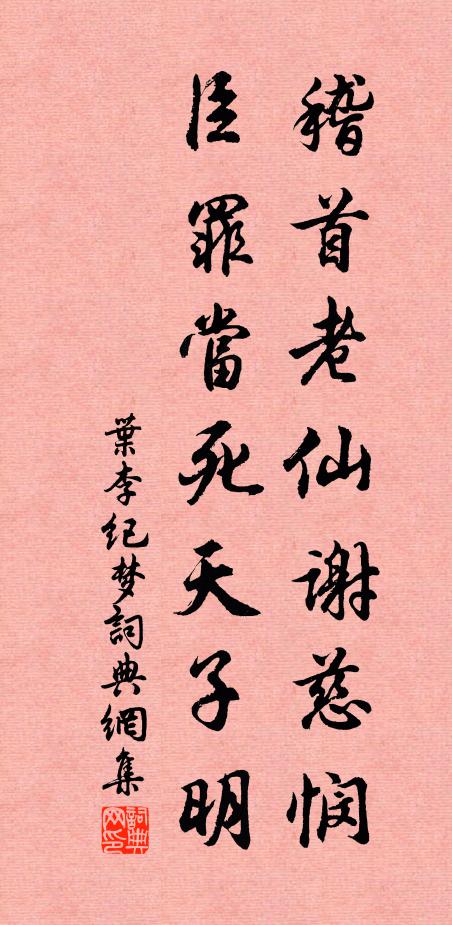 稽首老仙謝慈悯
臣罪當死天子明
葉李纪梦詞典網集
詞典网印